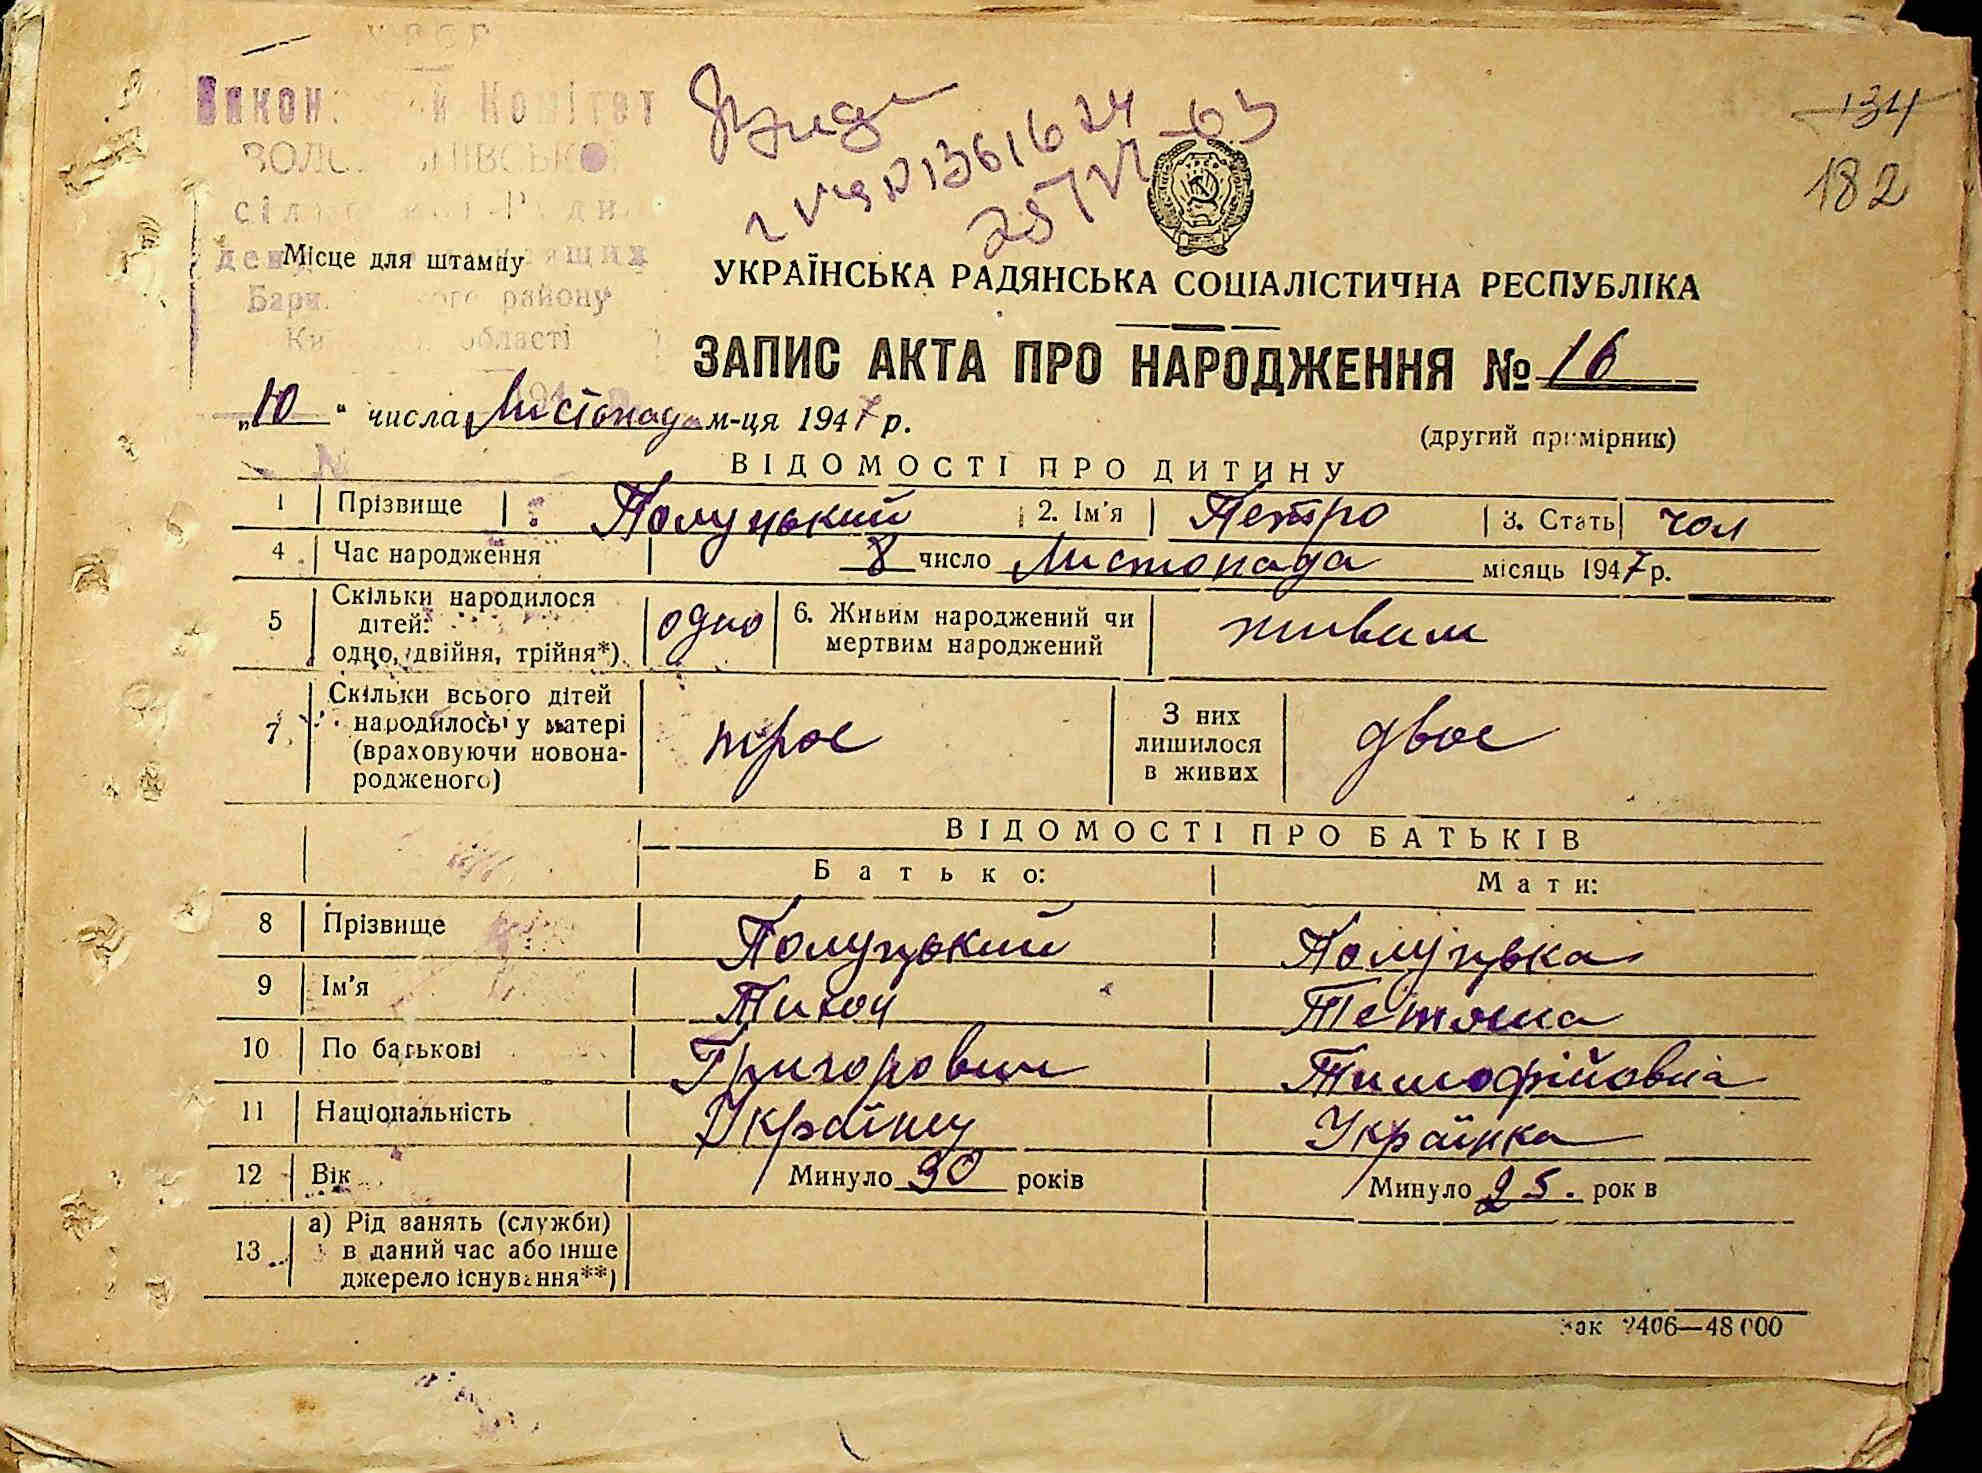 УРСР
Виконавчий Комітет
сільської Ради
району
області
134
182
Місце для штампу
УКРАЇНСЬКА РАДЯНСЬКА СОЦІАЛІСТИЧНА РЕСПУБЛІКА
ЗАПИС АКТА ПРО НАРОДЖЕННЯ № 16
„10" числа Листопада м-ця 1947 р.
(другий примірник)
ВІДОМОСТІ ПРО ДИТИНУ
1 Прізвище Полуцький 2. Ім'я Петро 3. Стать чол
4 Час народження 8 число Листопада місяць 1947 р.
5 Скільки народилося
дітей:
одно, двійня, трійня*) одно 6. Живим народжений чи
мертвим народжений живим
7 Скільки всього дітей
народилось у матері
(враховуючи новона-
родженого) троє З них
лишилося
в живих двоє
ВІДОМОСТІ ПРО БАТЬКІВ
Батько: Мати:
8 Прізвище Полуцький Полуцька
9 Ім'я Тихон Тетяна
10 По батькові Григорович Тимофійовна
11 Національність Українец Українка
12 Вік Минуло 30 років Минуло 25. рок в
13 а) Рід занять (служби)
в даний час або інше
джерело існування**)
Зак 2406—48 000